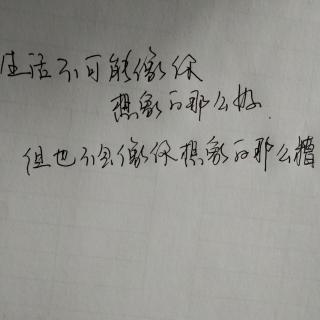 生活不可能像你
想象的那么好.
但也不会像你想象的那么糟